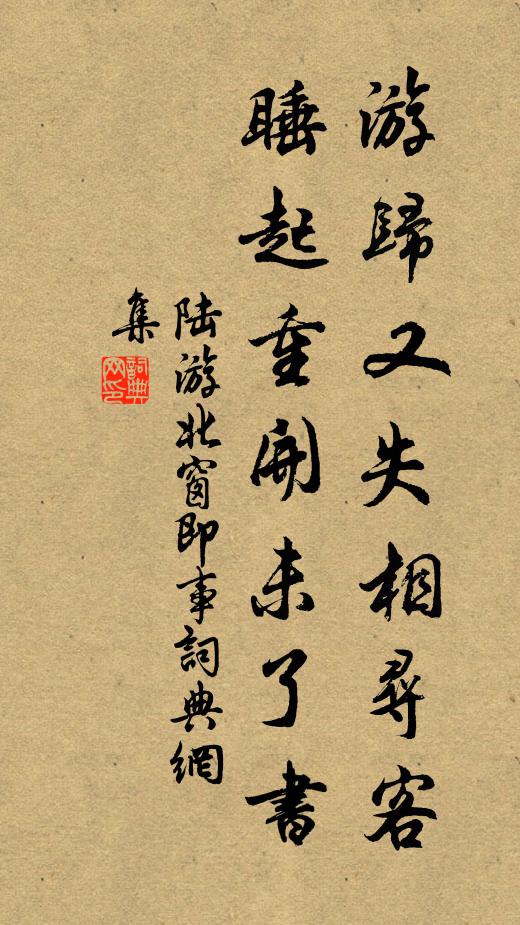 游歸又失相尋客
睡起重開未了書
陆游北窗即事詞典網
集
詞典
网印